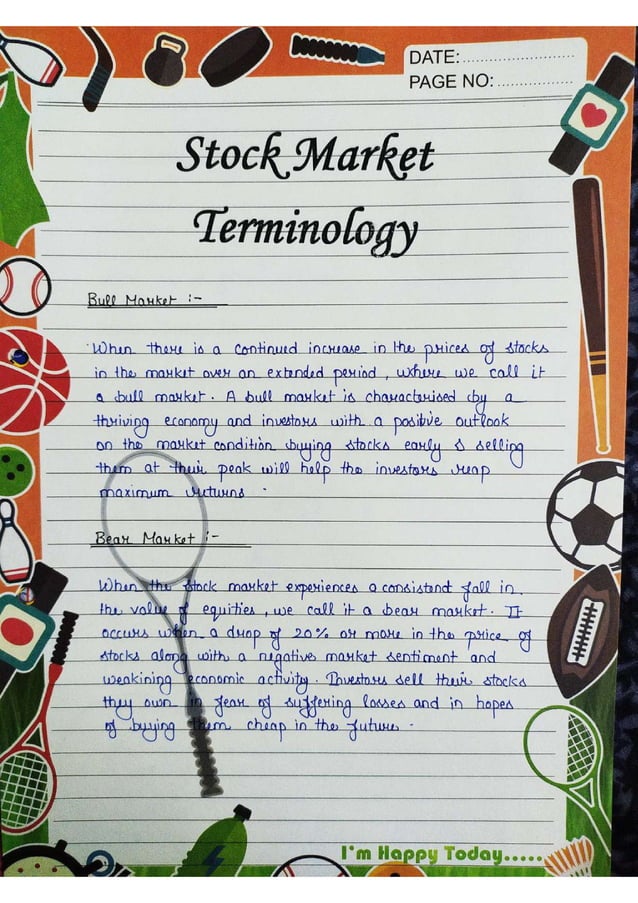 DATE:
PAGE NO:
Stock Market
Terminology
Bull Market :-
When there is a continued increase in the prices of stocks
in the market over an extended period, where we call it
a bull market. A bull market is characterised by a
thriving economy and investors with a positive outlook
on the market condition buying stocks early & selling
them at their peak will help the investors reap
maximum returns.
Bear Market :-
When the stock market experiences a consistend fall in
the value of equities, we call it a bear market. It
occurs when a drop of 20% or more in the price of
stocks along with a negative market sentiment and
weakining economic activity. Investors sell their stocks
they own in fear of suffering losses and in hopes
of buying them cheap in the future.
I'm Happy Today.....